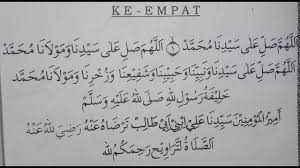 KE-EMPAT
اللّٰهُمَّ صَلِّ عَلَى سَيِّدِنَا مُحَمَّدٍ ۞ اللّٰهُمَّ صَلِّ عَلَى سَيِّدِنَا وَمَوْلَانَا مُحَمَّدٍ
اللّٰهُمَّ صَلِّ عَلَى سَيِّدِنَا وَنَبِيِّنَا وَحَبِيْبِنَا وَشَفِيْعِنَا وَزُخْرِنَا وَمَوْلَانَا مُحَمَّدٍ
خَلِيْفَةُ رَسُوْلِ اللّٰهِ صَلَّى اللّٰهُ عَلَيْهِ وَسَلَّمَ
أَمِيْرُ الْمُؤْمِنِيْنَ سَيِّدِنَا عَلِي ابْنِ أَبِي طَالِبْ تَرَضَّاهُ عَنْهُ رَضِيَ اللّٰهُ عَنْهُ
الصَّلَاةُ لتَّرَاوِيْحِ رَحِمَكُمُ اللّٰهُ